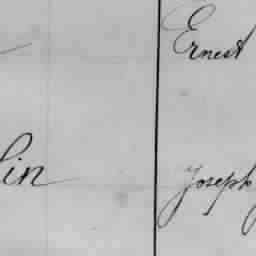 Ernest
lin Joseph